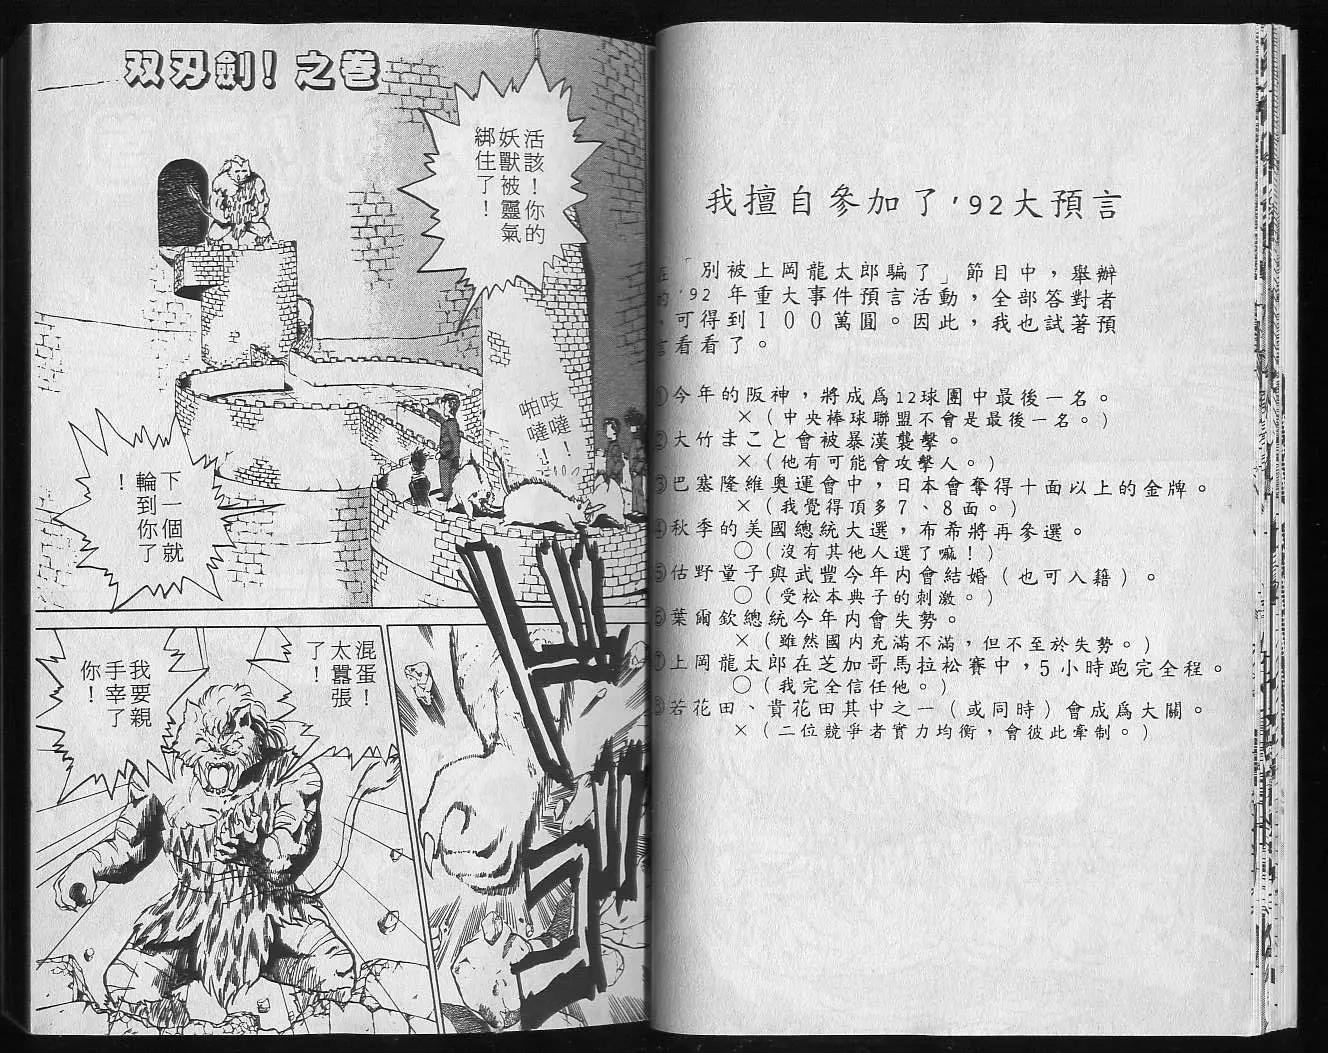 我擅自參加了'92大預言
在「別被上岡龍太郎騙了」節目中，舉辦
的'92年重大事件預言活動，全部答對者
，可得到１００萬圓。因此，我也試著預
言看看了。
①今年的阪神，將成爲12球團中最後一名。
×（中央棒球聯盟不會是最後一名。）
②大竹まこと會被暴漢襲擊。
×（他有可能會攻擊人。）
③巴塞隆維奧運會中，日本會奪得十面以上的金牌。
×（我覺得頂多７、８面。）
④秋季的美國總統大選，布希將再參選。
○（沒有其他人選了嘛！）
⑤估野量子與武豐今年内會結婚（也可入籍）。
○（受松本典子的刺激。）
⑥葉爾欽總統今年内會失勢。
×（雖然國内充滿不滿，但不至於失勢。）
⑦上岡龍太郎在芝加哥馬拉松賽中，5小時跑完全程。
○（我完全信任他。）
⑧若花田、貴花田其中之一（或同時）會成爲大關。
×（二位競爭者實力均衡，會彼此牽制。）
双刃劍！之卷
活該！你的
妖獸被靈氣
綁住了！
吱噠！
啪噠！
下一個就
輪到你了
！
混蛋！
太囂張
了！
我要親
手宰了
你！